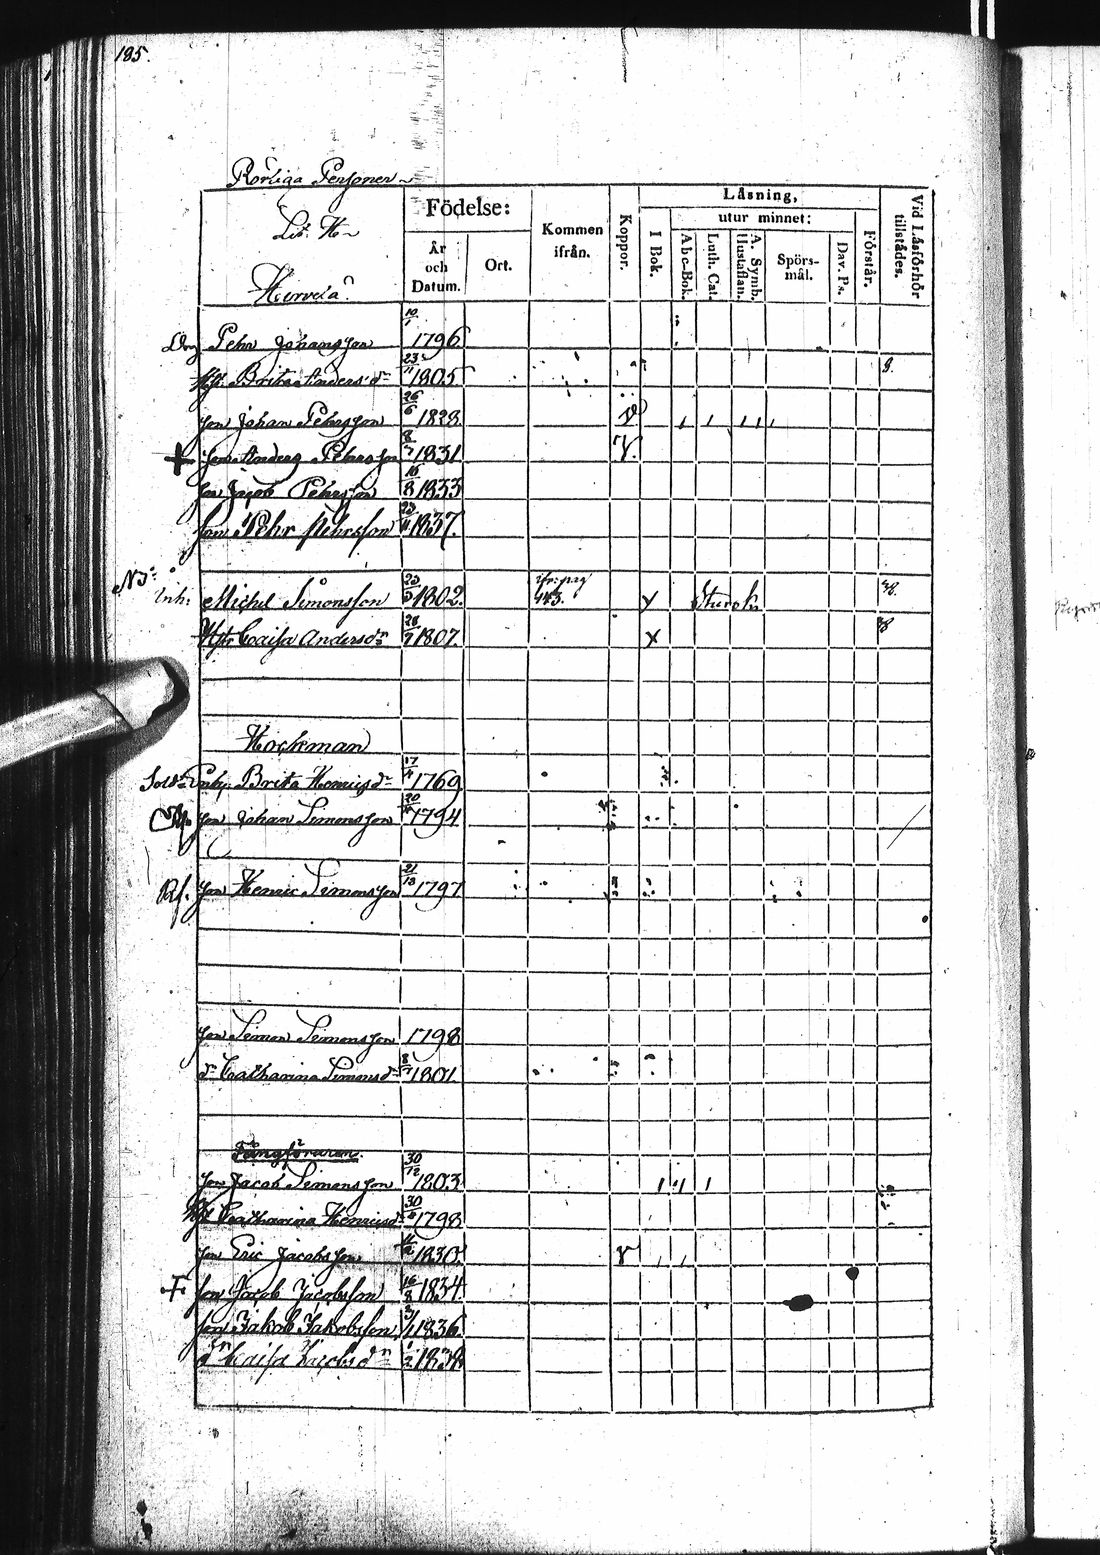 185.
Rörliga Personer
Litt. H.
Födelse:
Kommen ifrån.
Koppor.
Låsning,
I Bok.
utur minnet:
Abc-Bok.
Luth. Cat.
A. Symb. Hustaflan.
Spörsmål.
Dav. Ps.
Förstår.
Vid Låsförhör tillstådes.
År och Datum.
Ort.
Pehr Johansson 10/1 1796
Brita Andersdr 23/11 1805 8.
son Johan Pehrsson 26/6 1828
son Anders Pehrsson 8/7 1831
son Jacob Pehrsson 16/8 1833
son Pehr Pehrsson 23/11 1837.
Inh. Michel Simonsson 1802. ifr. pag 443. x 38.
Hstr Caisa Andersdr 28/7 1807. x 38
Hockman
Brita Henricsdr 1769
son Johan Simonsson 1794
Rf. son Henric Simonsson 1797
son Simon Simonsson 1798
dr Catharina Simonsdr 1801
son Jacob Simonsson 30/12 1803
Catharina Henricsdr 1798
son Eric Jacobsson 1830
son Jacob Jacobsson 16/8 1834
son Jakob Jakobsson 1836
dr Caisa Jacobsdr 1/2 1838